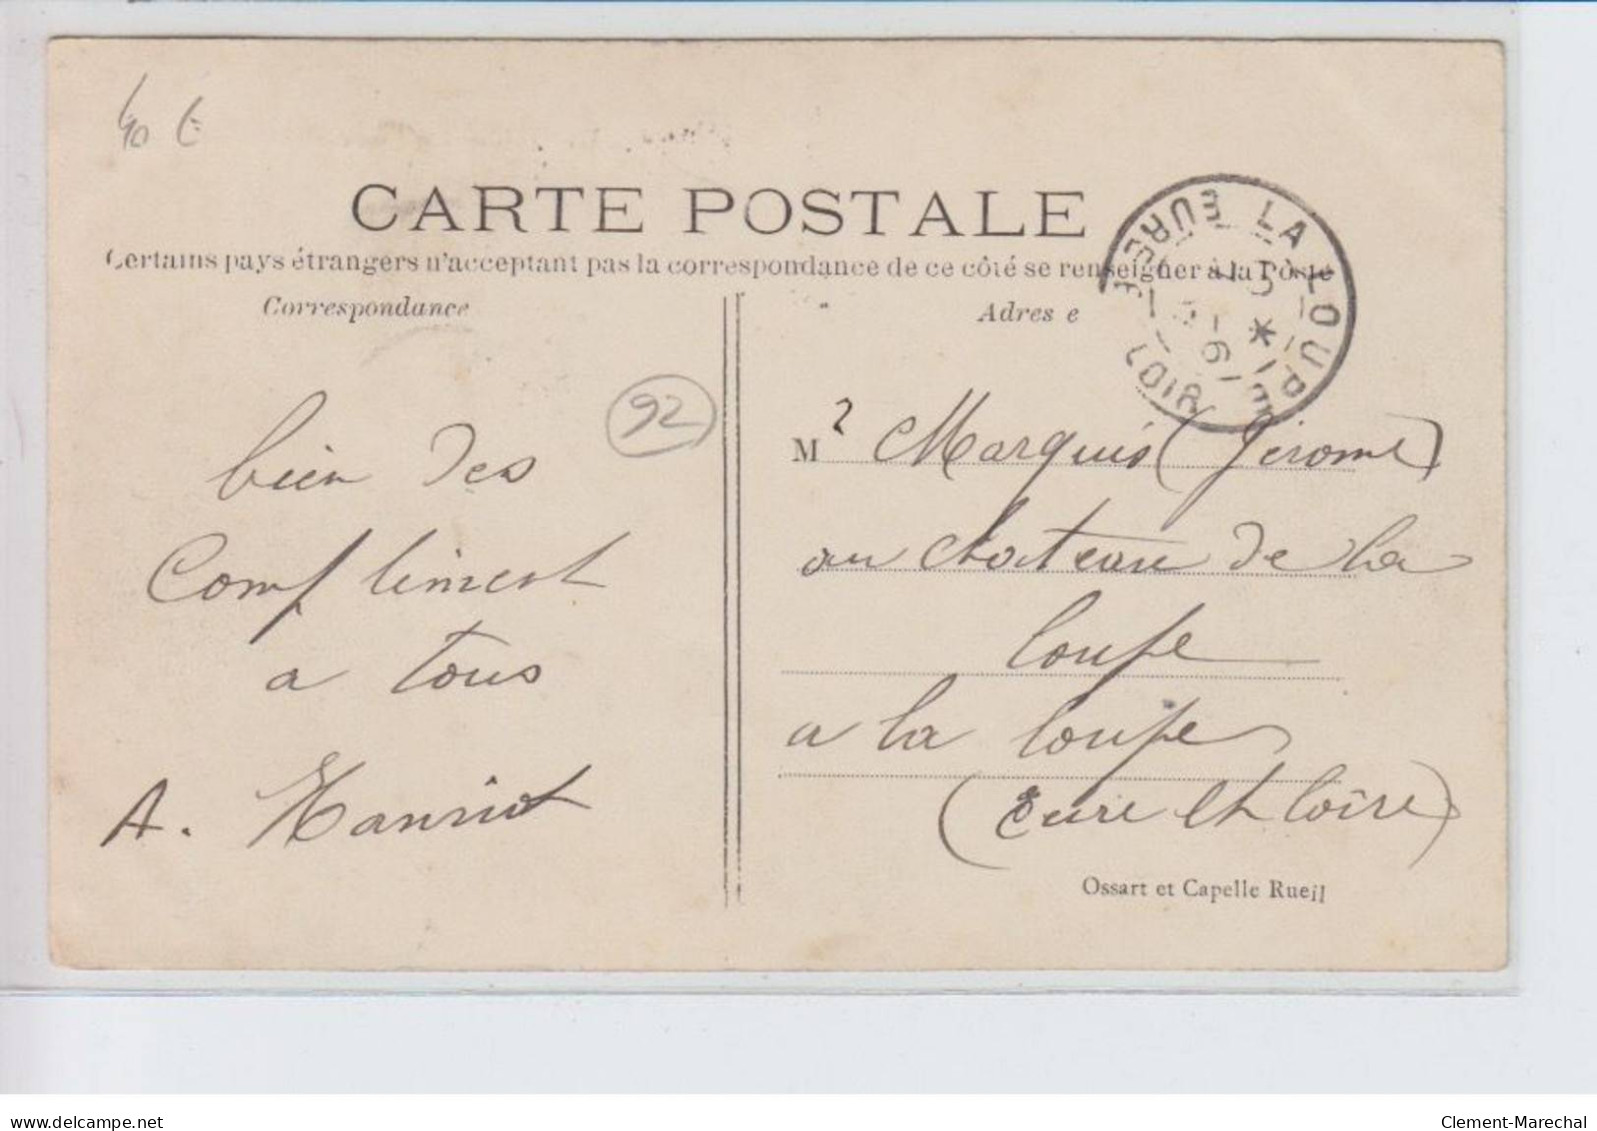 40 €
CARTE POSTALE
Certains pays étrangers n'acceptant pas la correspondance de ce côté se renseigner à la Poste
Correspondance
Adres e
LA LOUPE
EURE ET LOIR
92
bien des
Compliment
a tous
A. Hanriot
Mr Marquis (Jérome)
au chateau de la
loupe
a la loupe
(Eure et Loire)
Ossart et Capelle Rueil
delcampe.net
Clement-Marechal